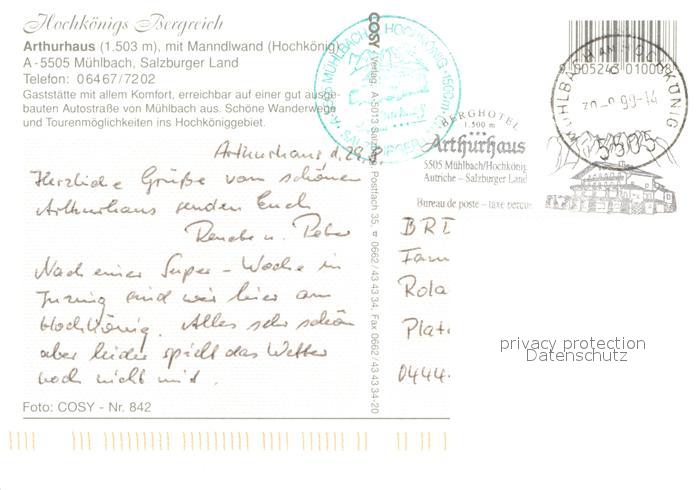 Hochkönigs Bergreich
Arthurhaus (1.503 m), mit Manndlwand (Hochkönig)
A-5505 Mühlbach, Salzburger Land
Telefon: 06467/7202
Gaststätte mit allem Komfort, erreichbar auf einer gut ausge-
bauten Autostraße von Mühlbach aus. Schöne Wanderwege
und Tourenmöglichkeiten ins Hochköniggebiet.
Arthurhaus d. 29.
Herzliche Grüße vom schönen
Arthurhaus senden Euch
Renate u. Peter
Nach einer Super-Woche in
sind wir hier am
Hochkönig. Alles sehr schön
aber leider spielt das Wetter
noch nicht mit.
Foto: COSY - Nr. 842
COSY Verlag, A-5013 Salzburg, Postfach 35, 0662/43 43 34, Fax 0662/43 43 34-20
MÜHLBACH HOCHKÖNIG 1503m
BERGHOTEL
1.500 m
Arthurhaus
5505 Mühlbach/Hochkönig
Autriche – Salzburger Land
Bureau de poste – taxe percue
9 005243 010008
MÜHLBACH AM HOCHKÖNIG
99-14
5505
BRD
Fam
Rola
Plat
0444
privacy protection
Datenschutz